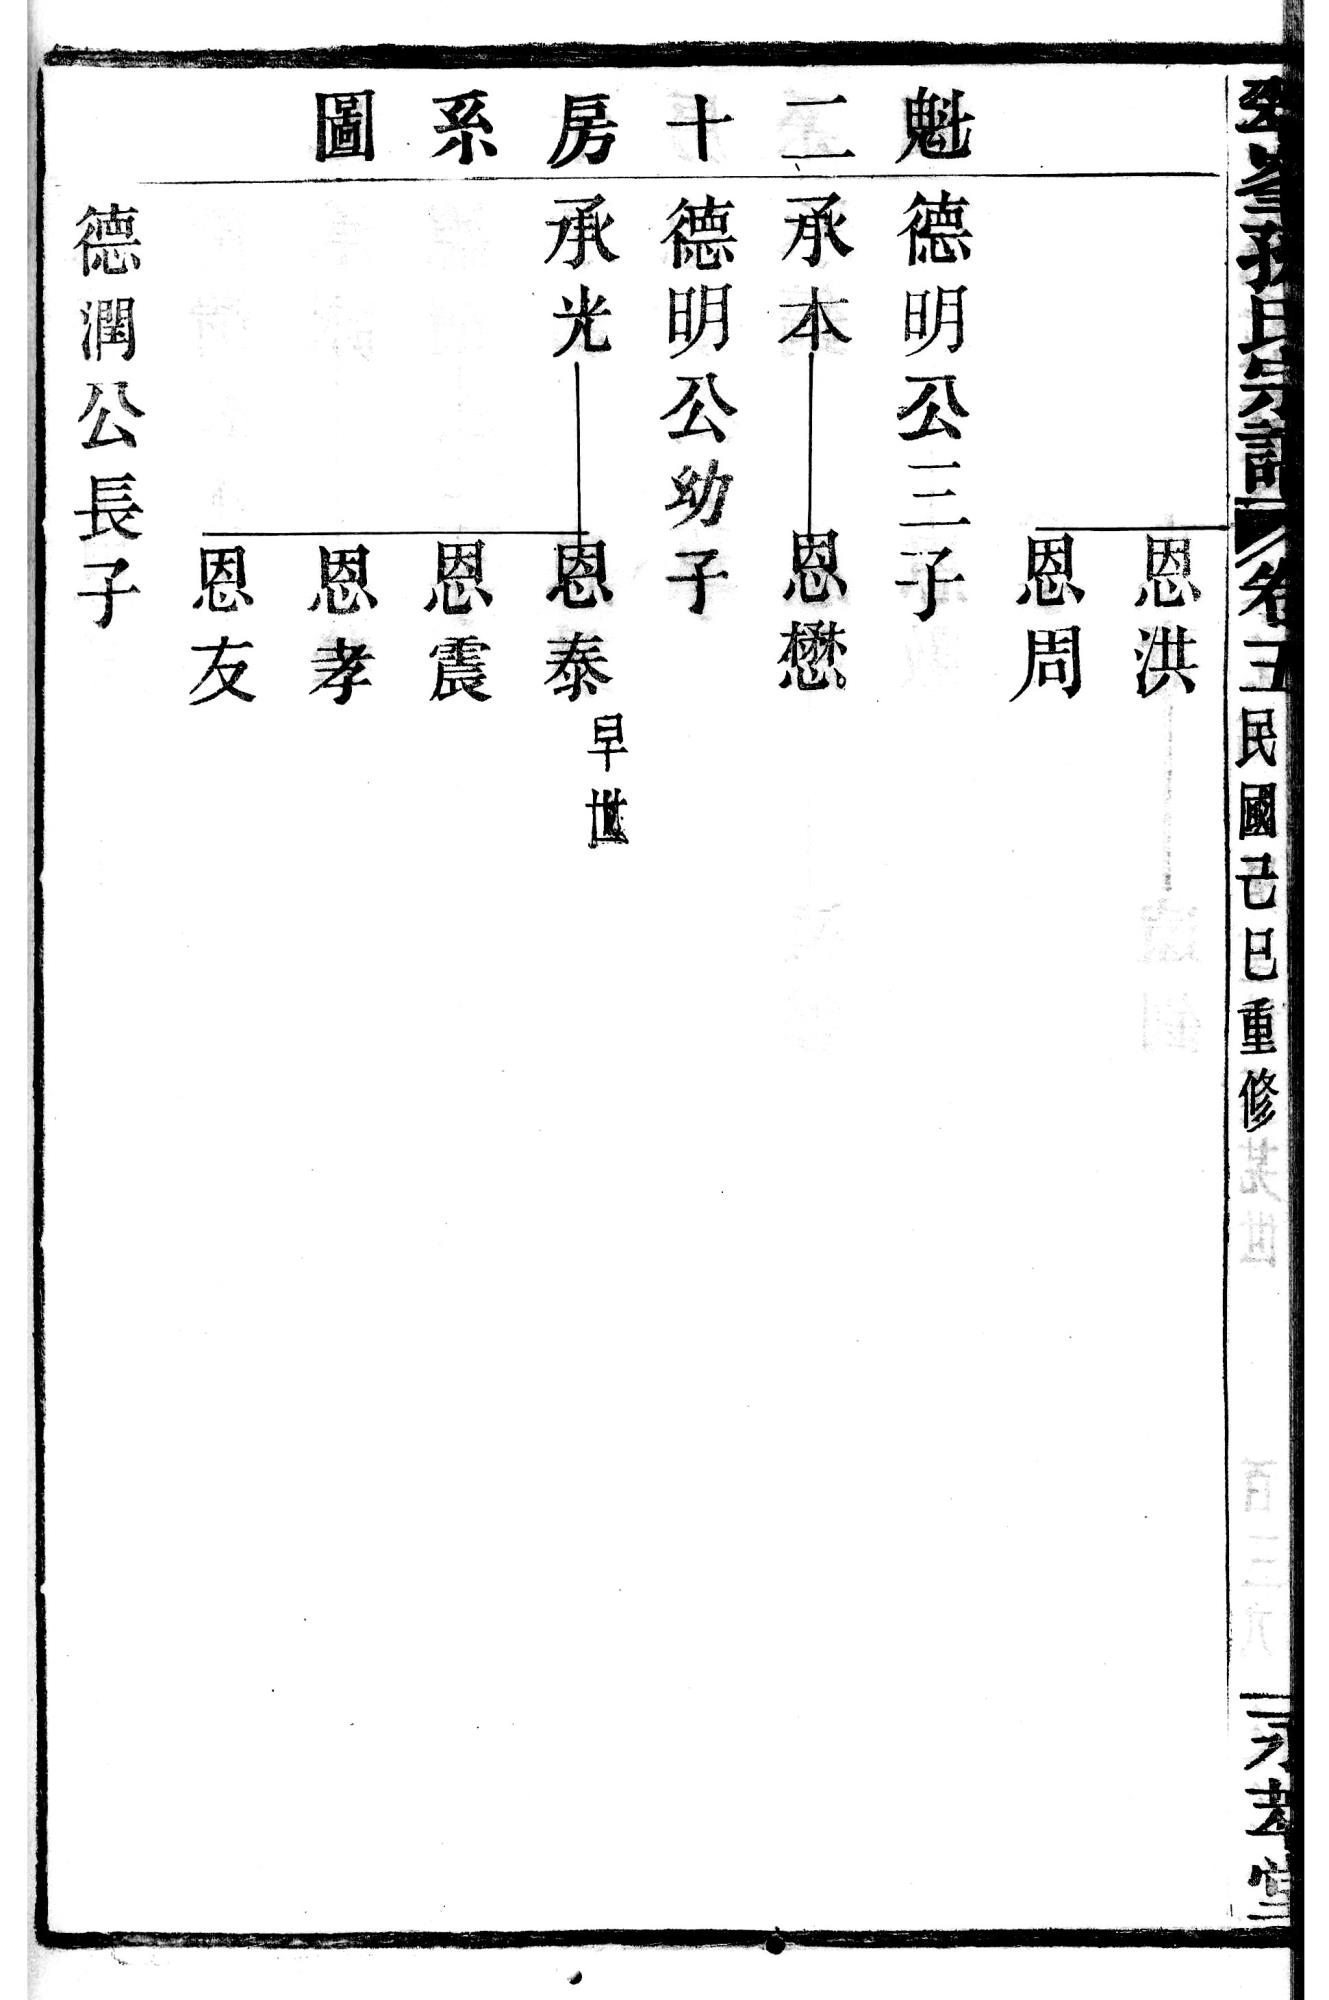 氏宗譜
卷三
民國己巳重修
堂
魁二十房系圖
恩洪
恩周
德明公三子
承本
恩懋
德明公幼子
承光
恩泰
早世
恩震
恩孝
恩友
德潤公長子